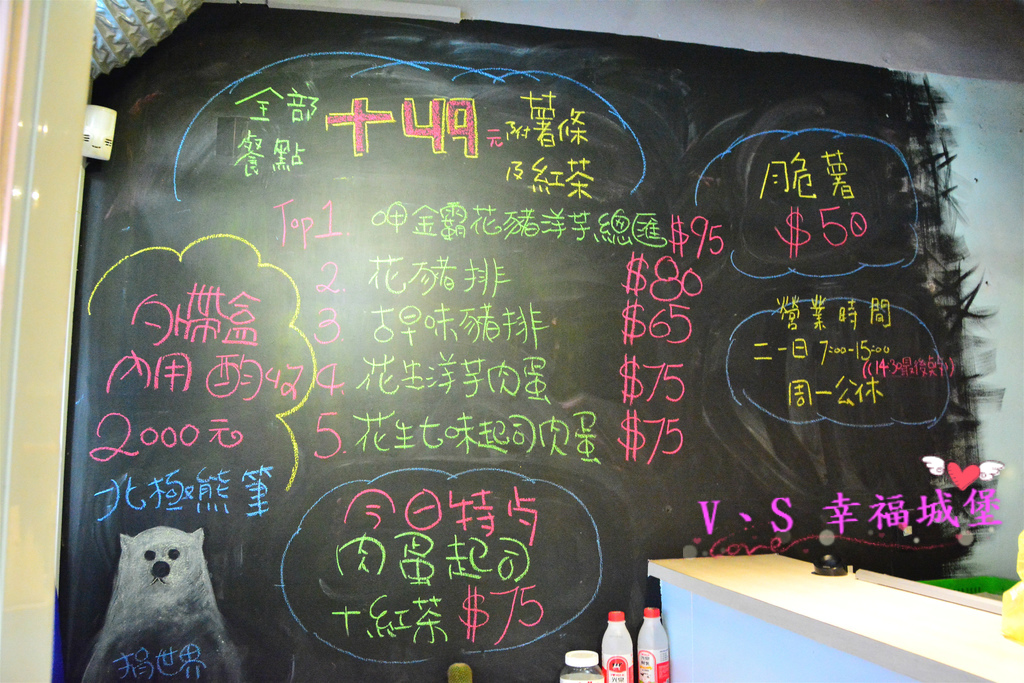 全部 +49元 附薯條
餐點 及紅茶
Top 1. 呷金霸花豬洋芋總匯 $95
2. 花豬排 $80
3. 古早味豬排 $65
4. 花生洋芋肉蛋 $75
5. 花生七味起司肉蛋 $75
脆薯
$50
營業時間
二一日 7:00-15:00
(14:30最後點
周一公休
外帶盒
內用 酌收
2000元
北極熊筆
今日特点
肉蛋起司
+紅茶 $75
世界
V、S 幸福城堡
Love